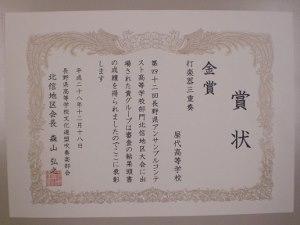 賞状
金賞
屋代高等学校
打楽器三重奏
第四十二回長野県アンサンブルコンテ
スト高等学校部門北信地区大会に出
場された貴グループは審査の結果頭書
の成績を得られましたのでここに表彰
します
平成二十八年十二月十八日
長野県高等学校文化連盟吹奏楽部会
北信地区会長 森山弘之